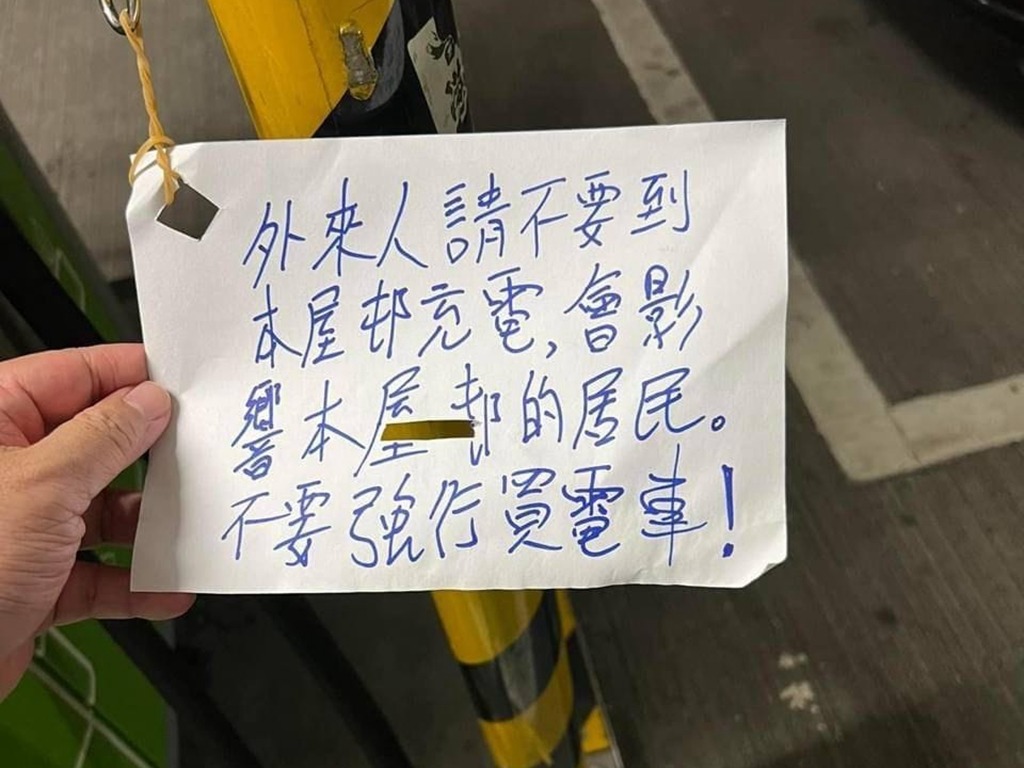 外來人請不要到
本屋邨充電,會影
響本屋邨的居民。
不要強行買電車!